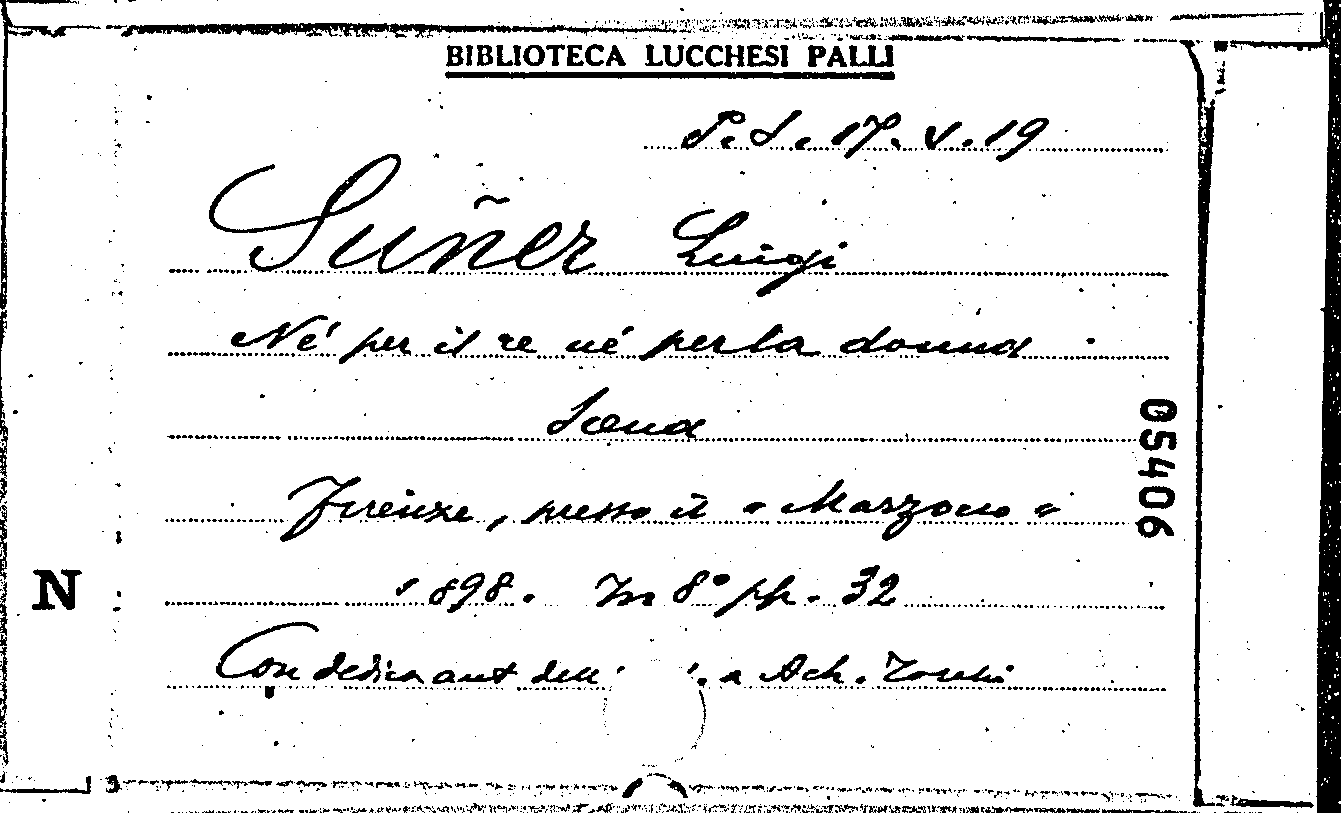 BIBLIOTECA LUCCHESI PALLI
P. S. 17. V. 19
Suñer Luigi
Né per il re né per la donna
Scena
Firenze, presso il « Marzocco »
1898. In 8° pp. 32
Con dedica aut dell' . a Ach. Torelli
N
05406